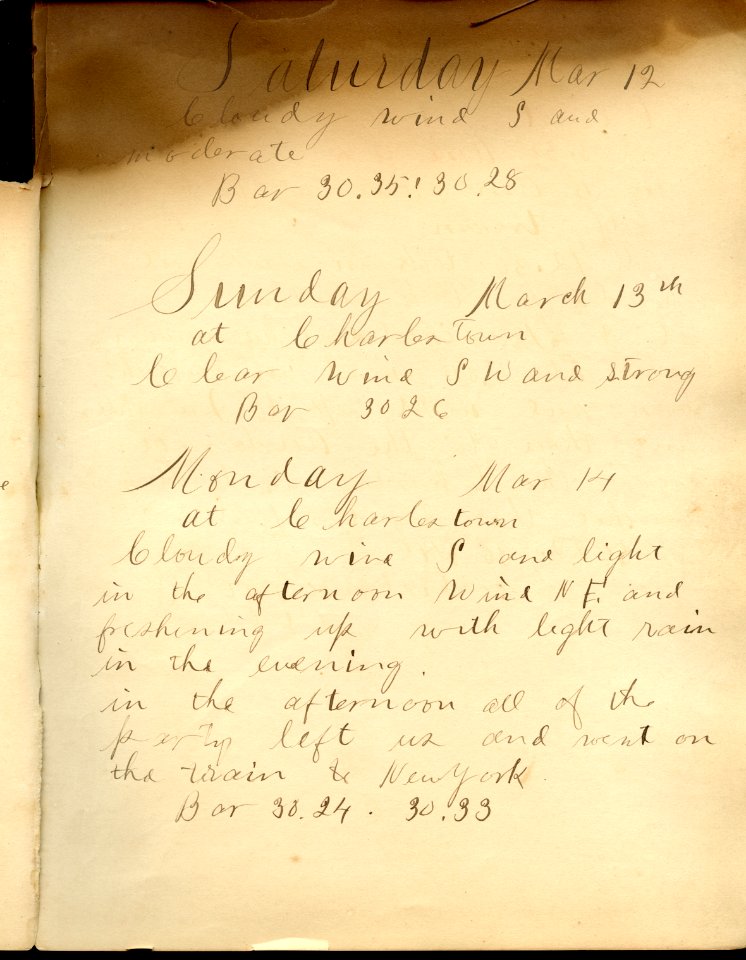 Saturday Mar 12
Cloudy wind S and
moderate
Bar 30.35! 30.28
Sunday March 13th
at Charlestown
Clear wind S W and strong
Bar 30 26
Monday Mar 14
at Charlestown
Cloudy wind S and light
in the afternoon wind N E. and
freshening up with light rain
in the evening.
in the afternoon all of the
party left us and went on
the train to New York.
Bar 30.24 . 30.33